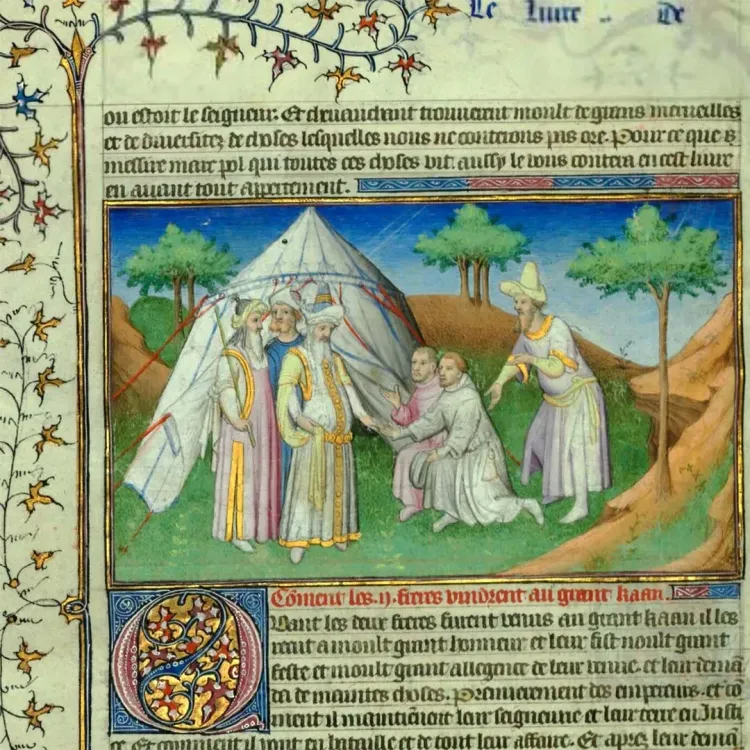 Le liure .. De
ou estoit le seigneur. Et cheuauchant trouuerent moult de grans merueilles
et de diuersitez de choses lesquelles nous ne conterons pas ore. Pour ce que
messire marc pol qui toutes ces choses vit aussy le vous contera en cest liure
en auant tout appertement.
Cōment les .ij. freres vindrent au grant kaan.
Quant les deux freres furent venus au grant kaan il les
recut a moult grant honneur et leur fist moult grant
feste et moult grant allegence de leur venue. et leur demā
da de maintes choses. Premierement des empereurs. et cō
ment il maintienent leur seigneurie et leur terre en Justi
ce. Et comment il vont en bataille et de tout leur affaire. Et apres leur demā